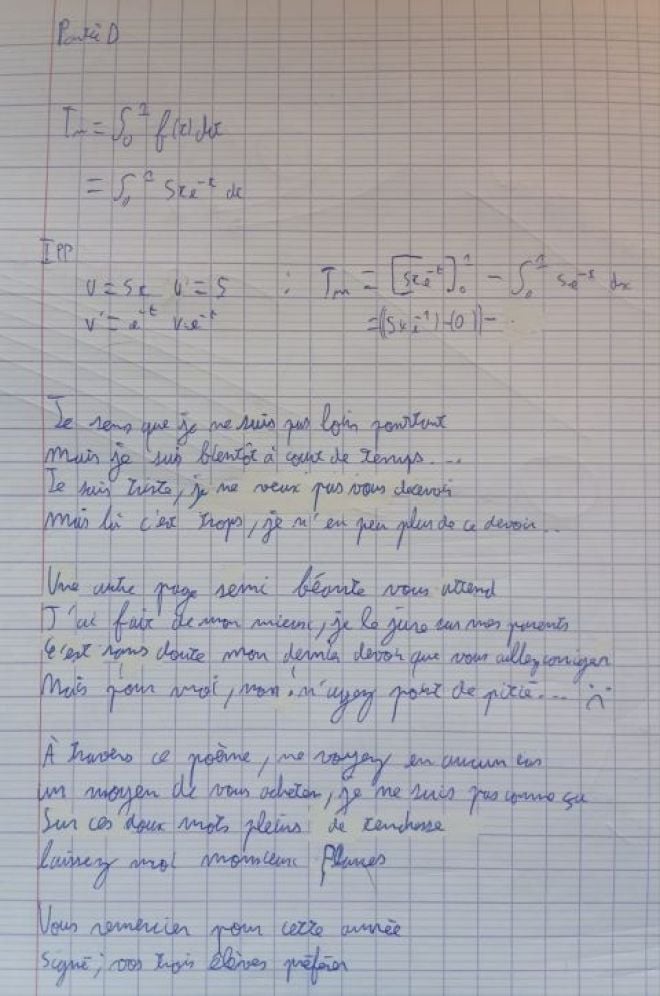 Partie D
Tm = ∫₀¹ f(x) dx
= ∫₀¹ 5xe⁻ˣ dx
IPP
U = 5x U' = 5 : Tm = [5xe⁻ᵗ]₀¹ - ∫₀¹ 5e⁻ˣ dx
V' = e⁻ᵗ V = e⁻ᵗ = ((5xe⁻¹)-(0))-
Je sens que je ne suis pas loin pourtant
Mais je suis bientôt à court de temps....
Je suis triste, je ne veux pas vous décevoir
Mais là c'est trops, je n'en peu plus de ce devoir...
Une autre page semi béante vous attend
J'ai fait de mon mieux, je le jure sur mes parents
C'est sans doute mon dernier devoir que vous allez corriger
Mais pour moi, non ! n'ayez point de pitié.... :(
À travers ce poème, ne voyez en aucun cas
un moyen de vous acheter, je ne suis pas comme ça
Sur ces doux mots pleins de tendresse
laissez moi monsieur
Vous remercier pour cette année
signé ; vos trois élèves préférés